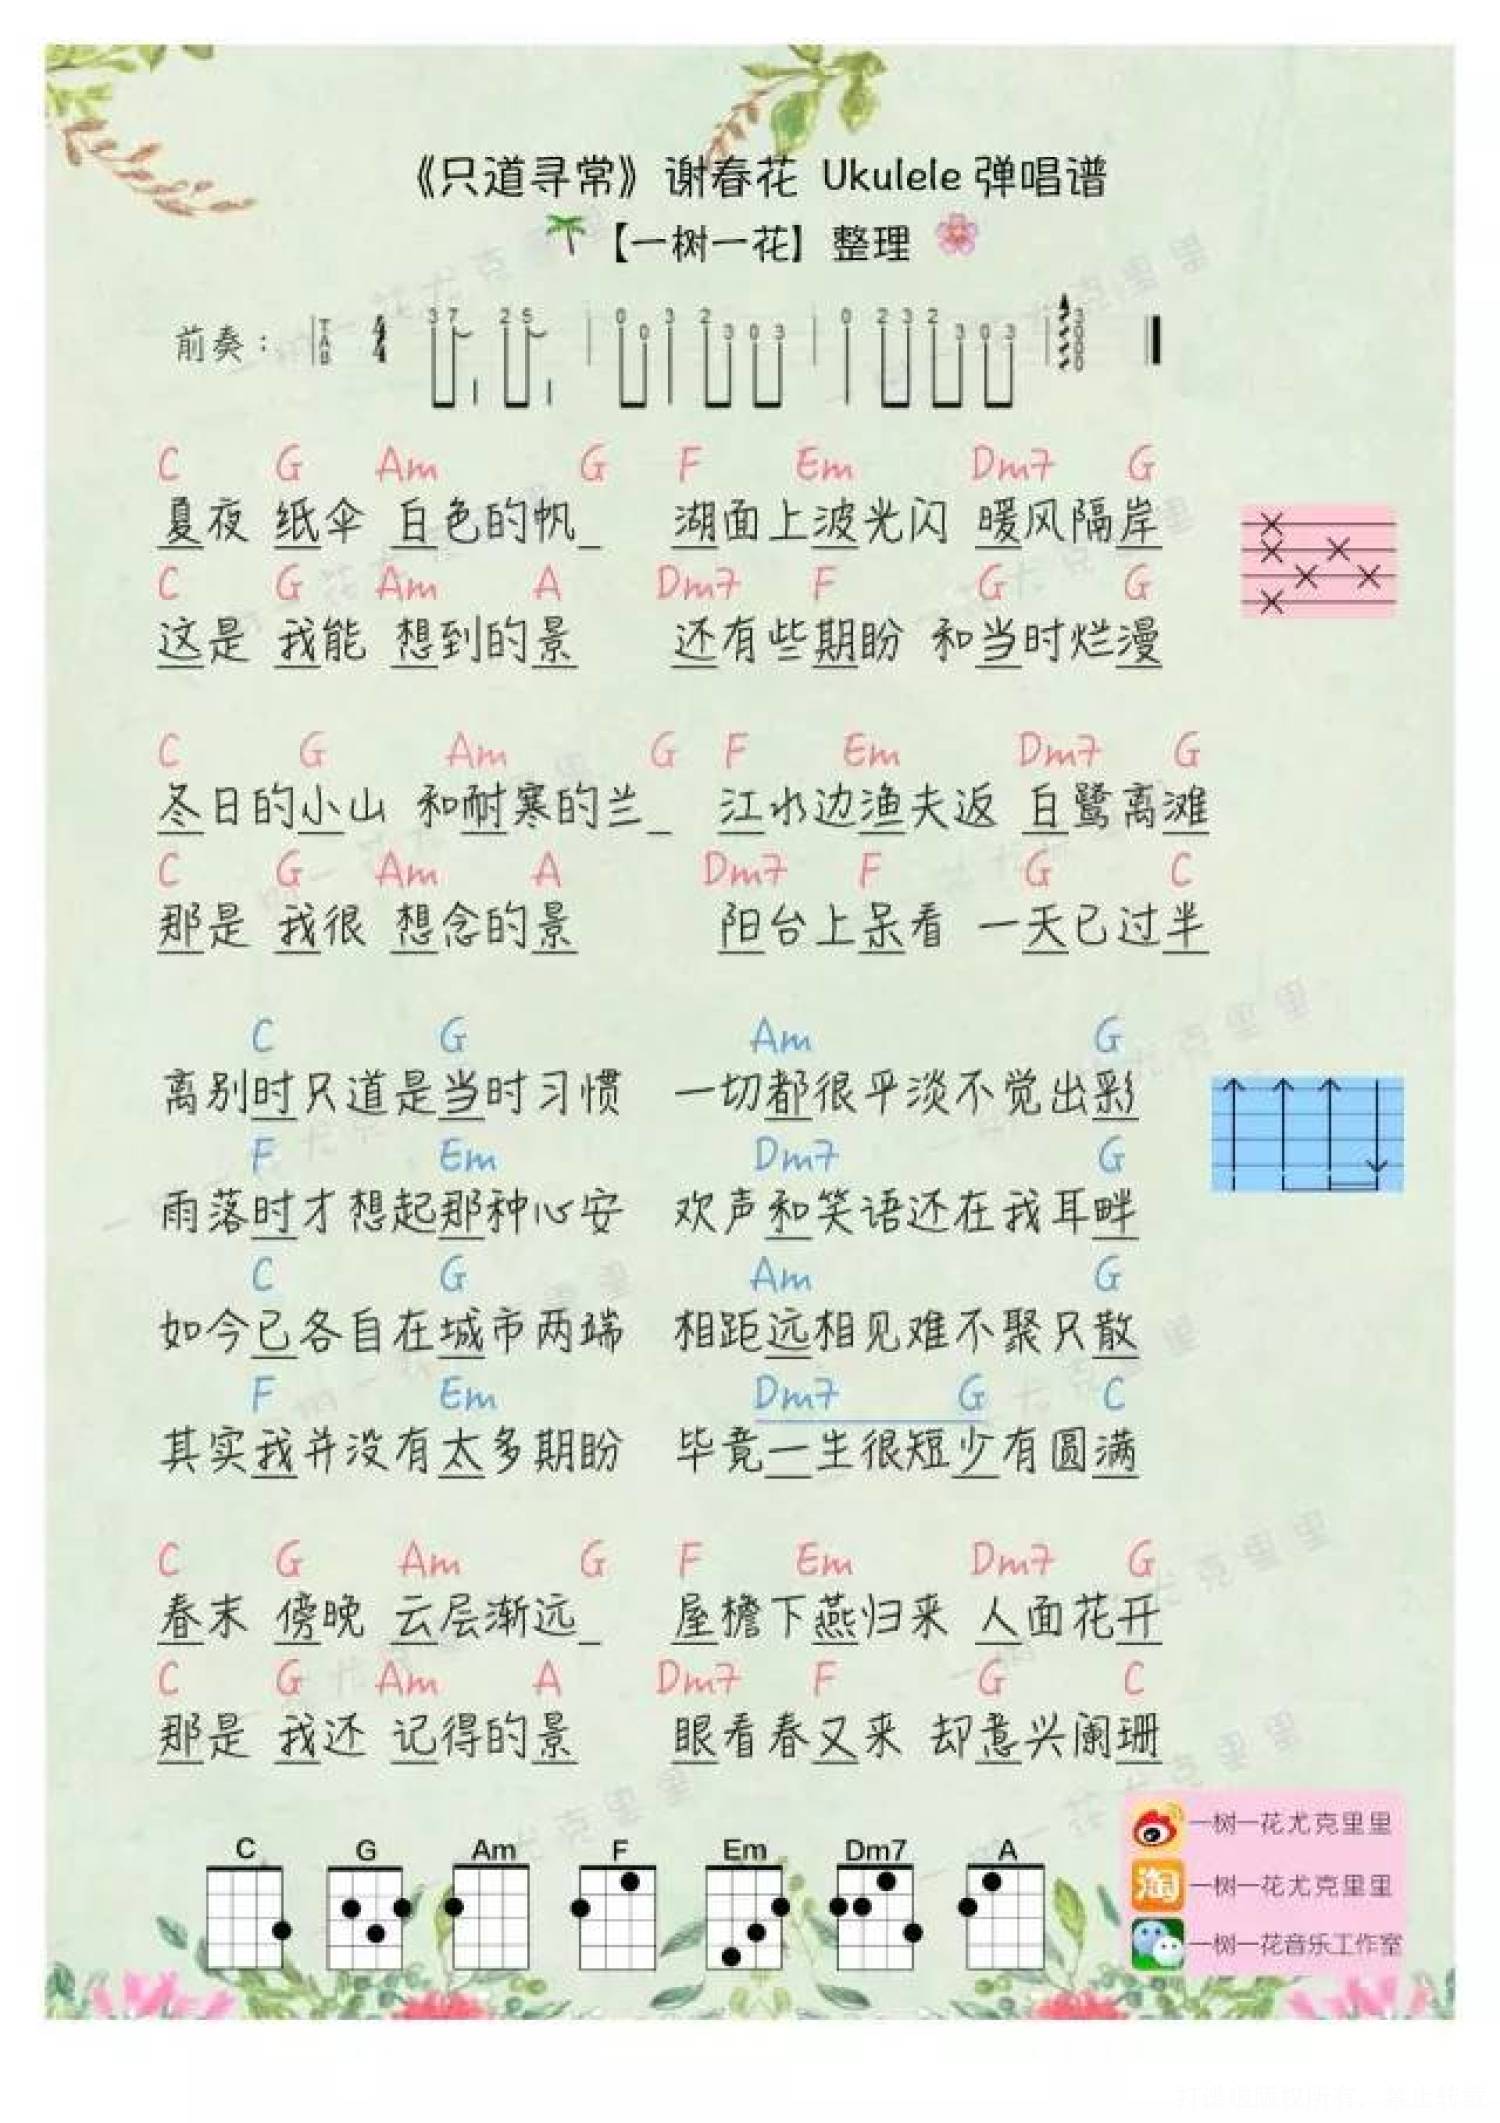 《只道寻常》谢春花 Ukulele 弹唱谱
【一树一花】整理
前奏：
TAB 4/4 3 7 2 5 0 0 3 2 3 0 3 0 2 3 2 3 0 3 3 0 0 0
C G Am G F Em Dm7 G
夏夜 纸伞 白色的帆_ 湖面上波光闪 暖风隔岸
C G Am A Dm7 F G G
这是 我能 想到的景 还有些期盼 和当时烂漫
C G Am G F Em Dm7 G
冬日的小山 和耐寒的兰_ 江水边渔夫返 白鹭离滩
C G Am A Dm7 F G C
那是 我很 想念的景 阳台上呆看 一天已过半
C G Am G
离别时只道是当时习惯 一切都很平淡不觉出彩
F Em Dm7 G
雨落时才想起那种心安 欢声和笑语还在我耳畔
C G Am G
如今已各自在城市两端 相距远相见难不聚只散
F Em Dm7 G C
其实我并没有太多期盼 毕竟一生很短少有圆满
C G Am G F Em Dm7 G
春末 傍晚 云层渐远_ 屋檐下燕归来 人面花开
C G Am A Dm7 F G C
那是 我还 记得的景 眼看春又来 却意兴阑珊
C G Am F Em Dm7 A
一树一花尤克里里
淘 一树一花尤克里里
一树一花音乐工作室